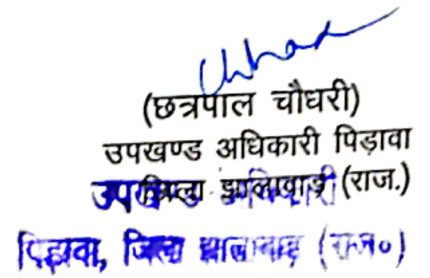 (छत्रपाल चौधरी)
उपखण्ड अधिकारी पिड़ावा
जिला झालावाड़ (राज.)
उपखण्ड अधिकारी
पिड़ावा, जिला झालावाड़ (राज०)